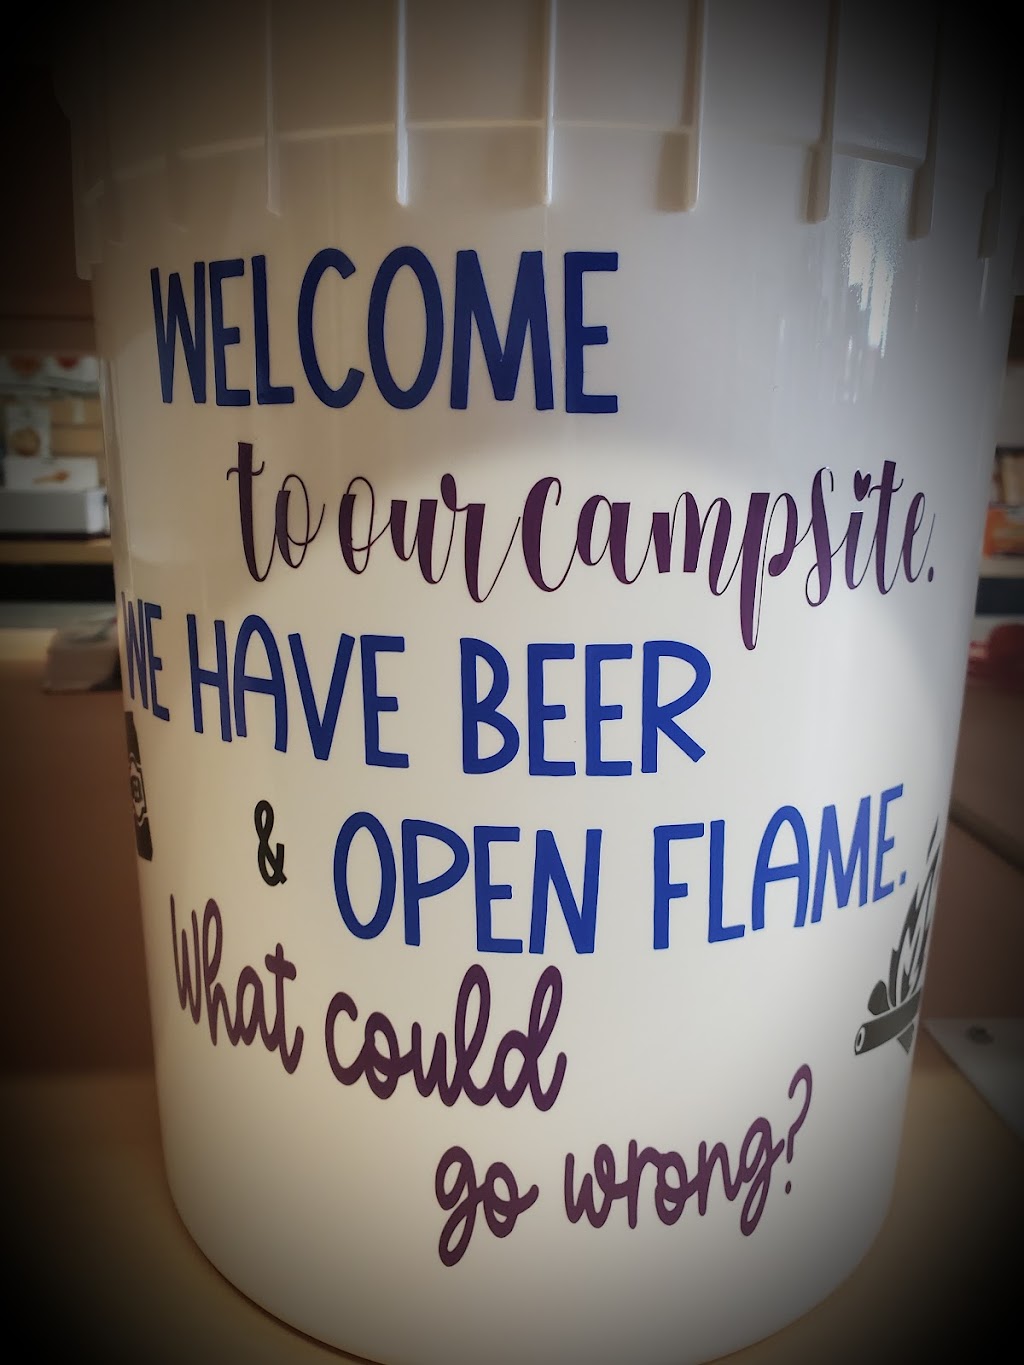 WELCOME
to our campsite.
WE HAVE BEER
& OPEN FLAME.
What could
go wrong?